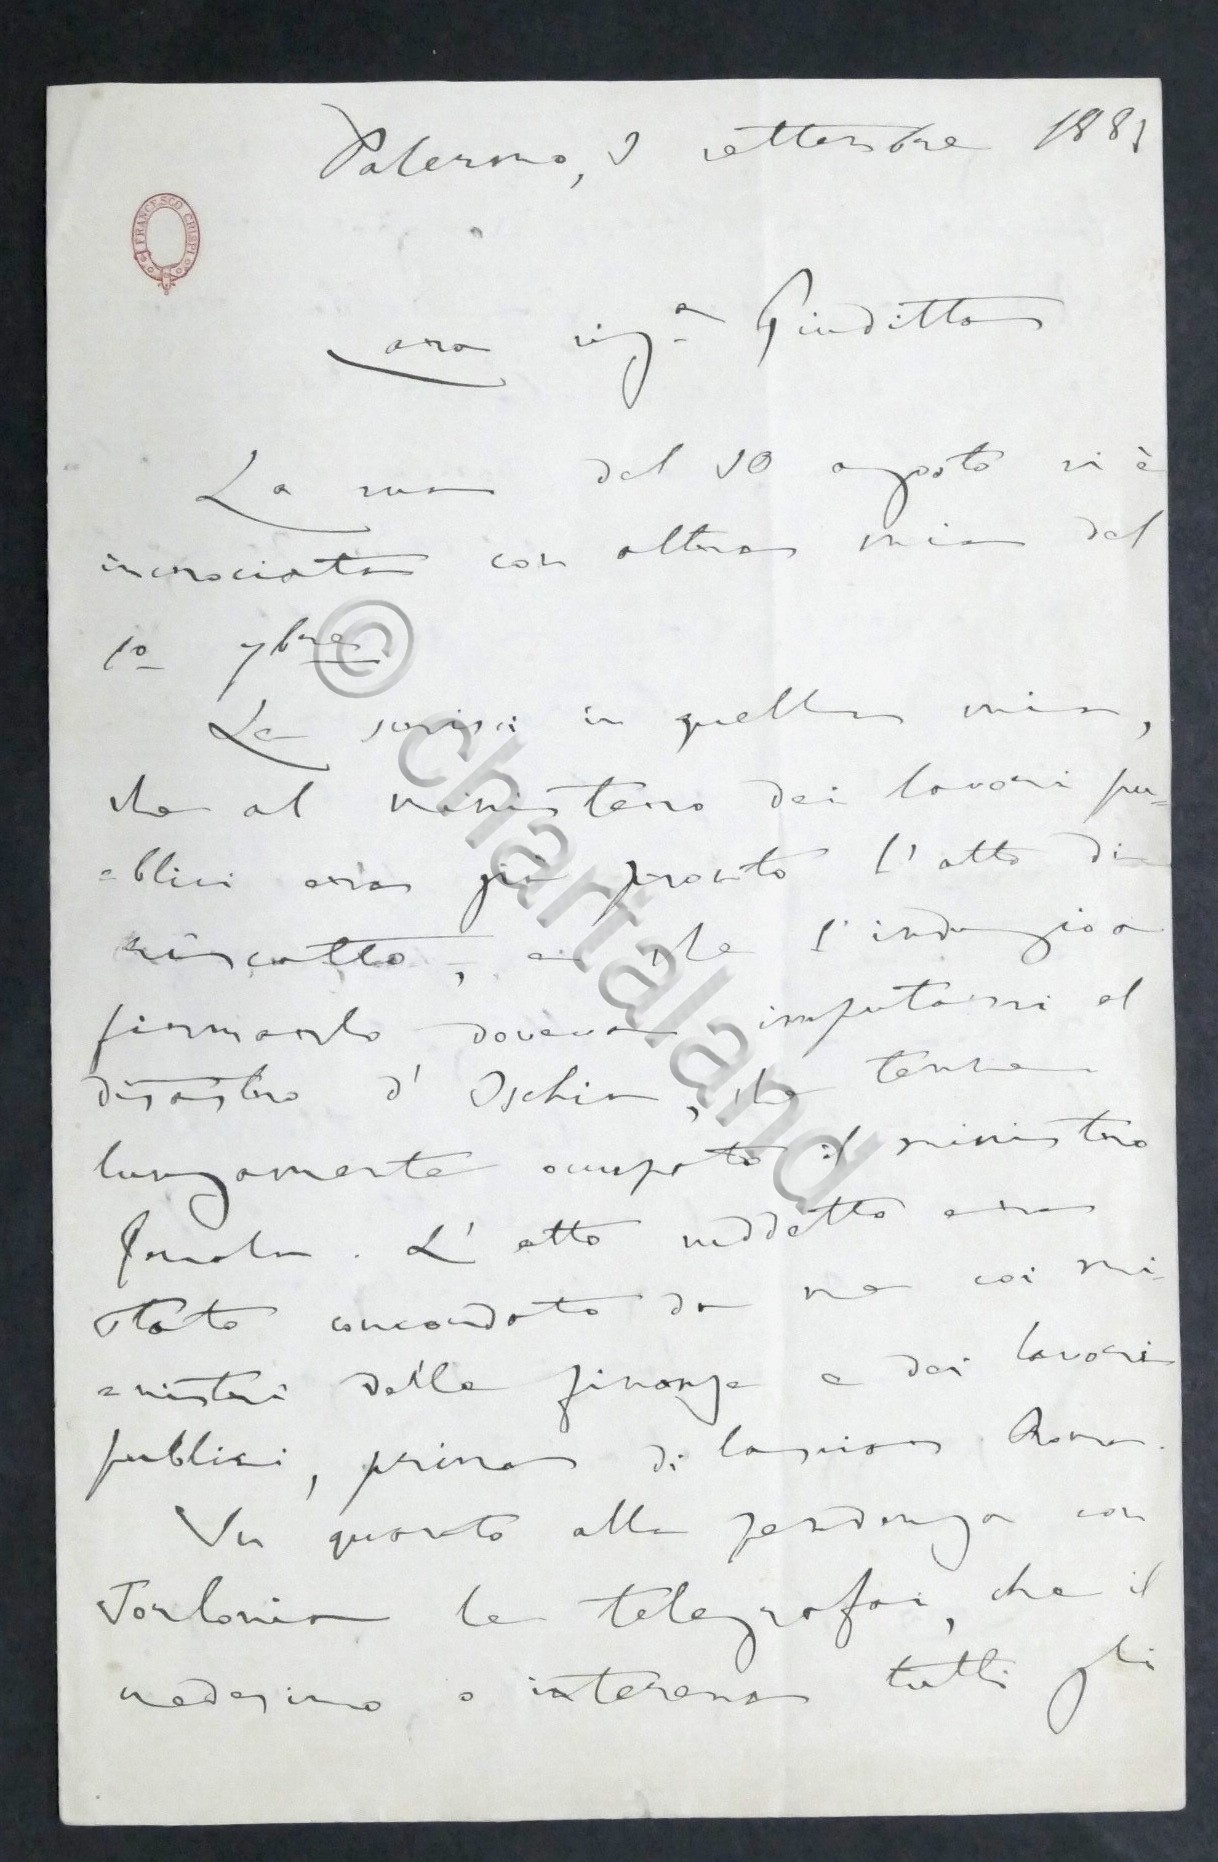 Palermo, 3 settembre 1883
FRANCESCO CRISPI
Cara sig.a Giuditta
La sua del 30 agosto si è
incrociata con altra mia del
1º 7bre
Le scrissi in quella mia,
che al ministero dei lavori pu=
=blici era già pronto l'atto di
riscatto, e che l'indugio a
firmarlo doveva imputarsi al
disastro d'Ischia, che tenne
lungamente occupato il ministro
Genala. L'atto suddetto era
stato concordato da me coi mi=
=nisteri delle finanze e dei lavori
publici, prima di lasciar Roma.
In quanto alla pendenza con
Torlonia le telegrafai, che il
medesimo o interessa tutti gli
© chartaland